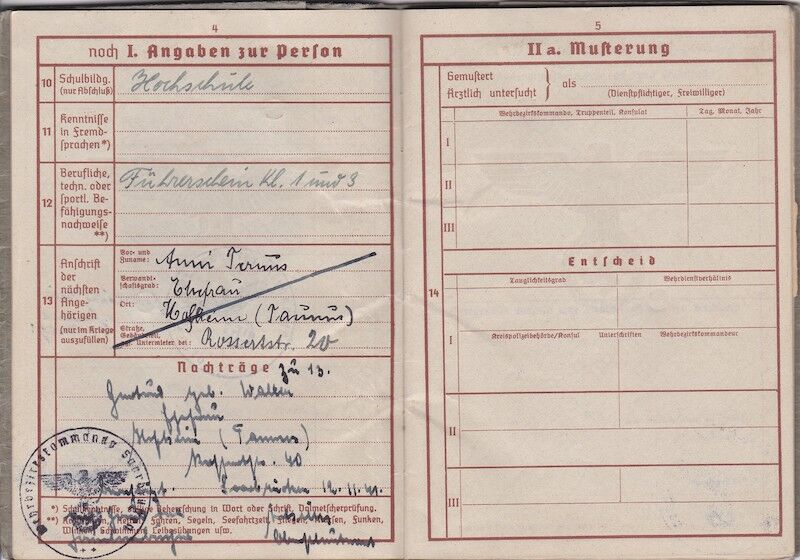 4
noch I. Angaben zur Person
10 Schulbildg. (nur Abschluß) Hochschule
11 Kenntnisse in Fremd-sprachen*)
12 Berufliche, techn. oder sportl. Be-fähigungs-nachweise **) Führerschein Kl. 1 und 3
13 Anschrift der nächsten Ange-hörigen (nur im Kriege auszufüllen)
Vor- und Zuname: Anni
Verwandt-schaftsgrad: Ehefrau
Ort: Hofheim (Taunus)
Straße, Gebäude Nr. als Untermieter bei: Rossertstr. 20
Nachträge zu 13.
geb.
Ehefrau
Hofheim (Taunus)
40
Saarbrücken 12.11.41.
*) Sprachkenntnisse, völlige Beherrschung in Wort oder Schrift, Dolmetscherprüfung.
Reiten, Fahren, Segeln, Seefahrtzeit, Fliegen, Funken,
Leibesübungen usw.
Wehrbezirkskommando
5
II a. Musterung
14
Gemustert
Ärztlich untersucht } als
(Dienstpflichtiger, Freiwilliger)
Wehrbezirkskommando, Truppenteil, Konsulat Tag, Monat, Jahr
I
II
III
Entscheid
Tauglichkeitsgrad Wehrdienstverhältnis
I
Kreispolizeibehörde/Konsul Unterschriften Wehrbezirkskommandeur
II
III